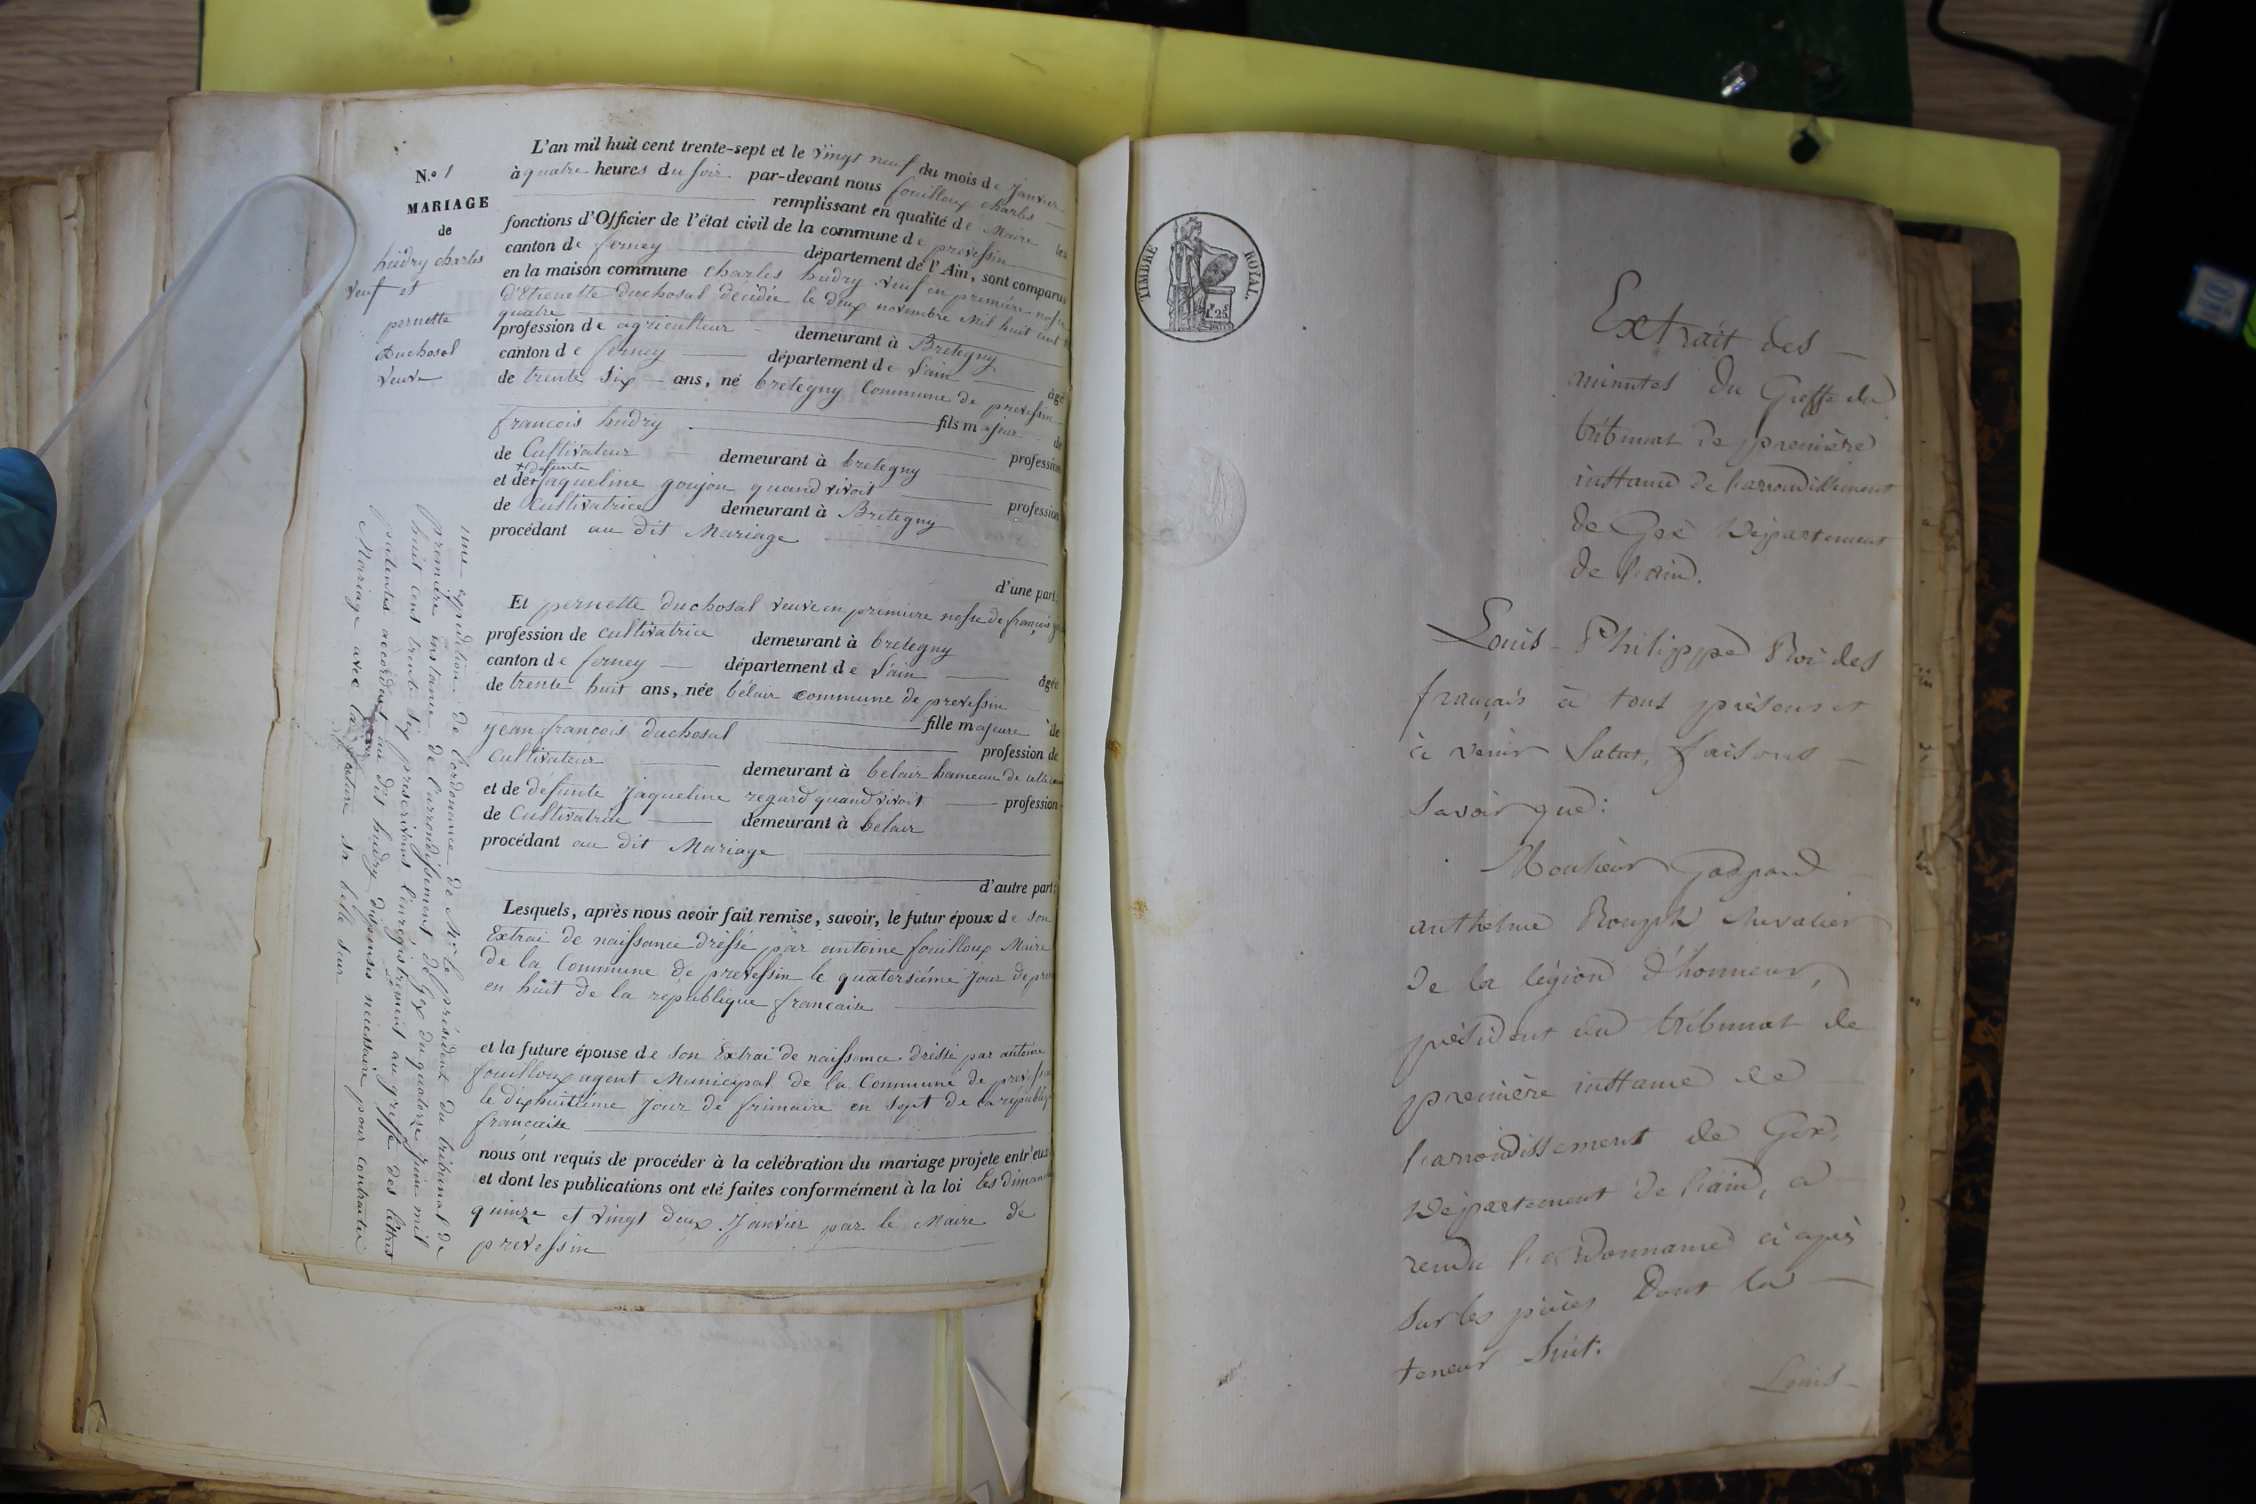 N.o 1
MARIAGE
de
hudry charles
veuf et
pernette
Duchosal
veuve
L'an mil huit cent trente-sept et le vingt neuf du mois de Janvier
à quatre heures du soir par-devant nous fouilloux charles
remplissant en qualité de Maire les
fonctions d'Officier de l'état civil de la commune de prevessin
canton de ferney département de l'Ain, sont comparus
en la maison commune charles hudry veuf en première nosse
d'Etienette duchosal décédée le deux novembre mil huit cent
quatre
profession de agriculteur demeurant à Bretegny
canton de ferney département de l'ain âgé
de trente six ans, né bretegny Commune de prevessin
fils majeur de
francois hudry profession
de Cultivateur demeurant à bretegny
+ défunte
et de + jaqueline goujon quand vivoit profession
de Cultivatrice demeurant à Bretegny
procédant au dit Mariage
d'une part;
Et pernette duchosal veuve en première nosse de françois
profession de cultivatrice demeurant à bretegny
canton de ferney département de l'ain âgée
de trente huit ans, née bélair commune de prevessin
fille majeure de
jean francois duchosal profession de
Cultivateur demeurant à belair hameau de cette
et de défunte Jaqueline regard quand vivoit profession
de Cultivatrice demeurant à belair
procédant au dit Mariage
d'autre part;
Lesquels, après nous avoir fait remise, savoir, le futur époux de son
Extrai de naissance dréssé par antoine fouilloux Maire
de la Commune de prevessin le quatorsiéme Jour de
en huit de la république francaise
et la future épouse de son Extrai de naissance dréssé par antoine
fouilloux agent Municipal de la Commune de
le dixhuitiéme Jour de frimaire en sept de la
francaise
nous ont requis de procéder à la celébration du mariage projeté entr'eux
et dont les publications ont eté faites conformément à la loi les
quinze et vingt deux Janvier par le Maire de
prevessin
une éxpédition de l'ordonance de Mr le président du tribunal de
première instance de l'arrondissement de Gex du quatorze Juin mil
huit cent trente six prescrivant l'enrégistrement au greffe des lettres
patentes accordant au dit hudry dispenses nécéssaire pour contracter
Mariage avec la future sa belle seur
TIMBRE ROYAL.
1f 25
Extrait des
minutes du Greffe du
tribunal de première
instance de l'arrondissement
de Gex Département
de l'ain.
Louis-Philippe Roi des
français à tous présens et
à venir Salut, faisons
savoir que:
Monsieur Gaspard
anthelme Rouph chevalier
de la légion d'honneur,
président du tribunal de
première instance de
l'arrondissement de Gex,
Département de l'ain, a
rendu l'ordonnance ci après
sur les pièces Dont la
teneur suit:
Louis-